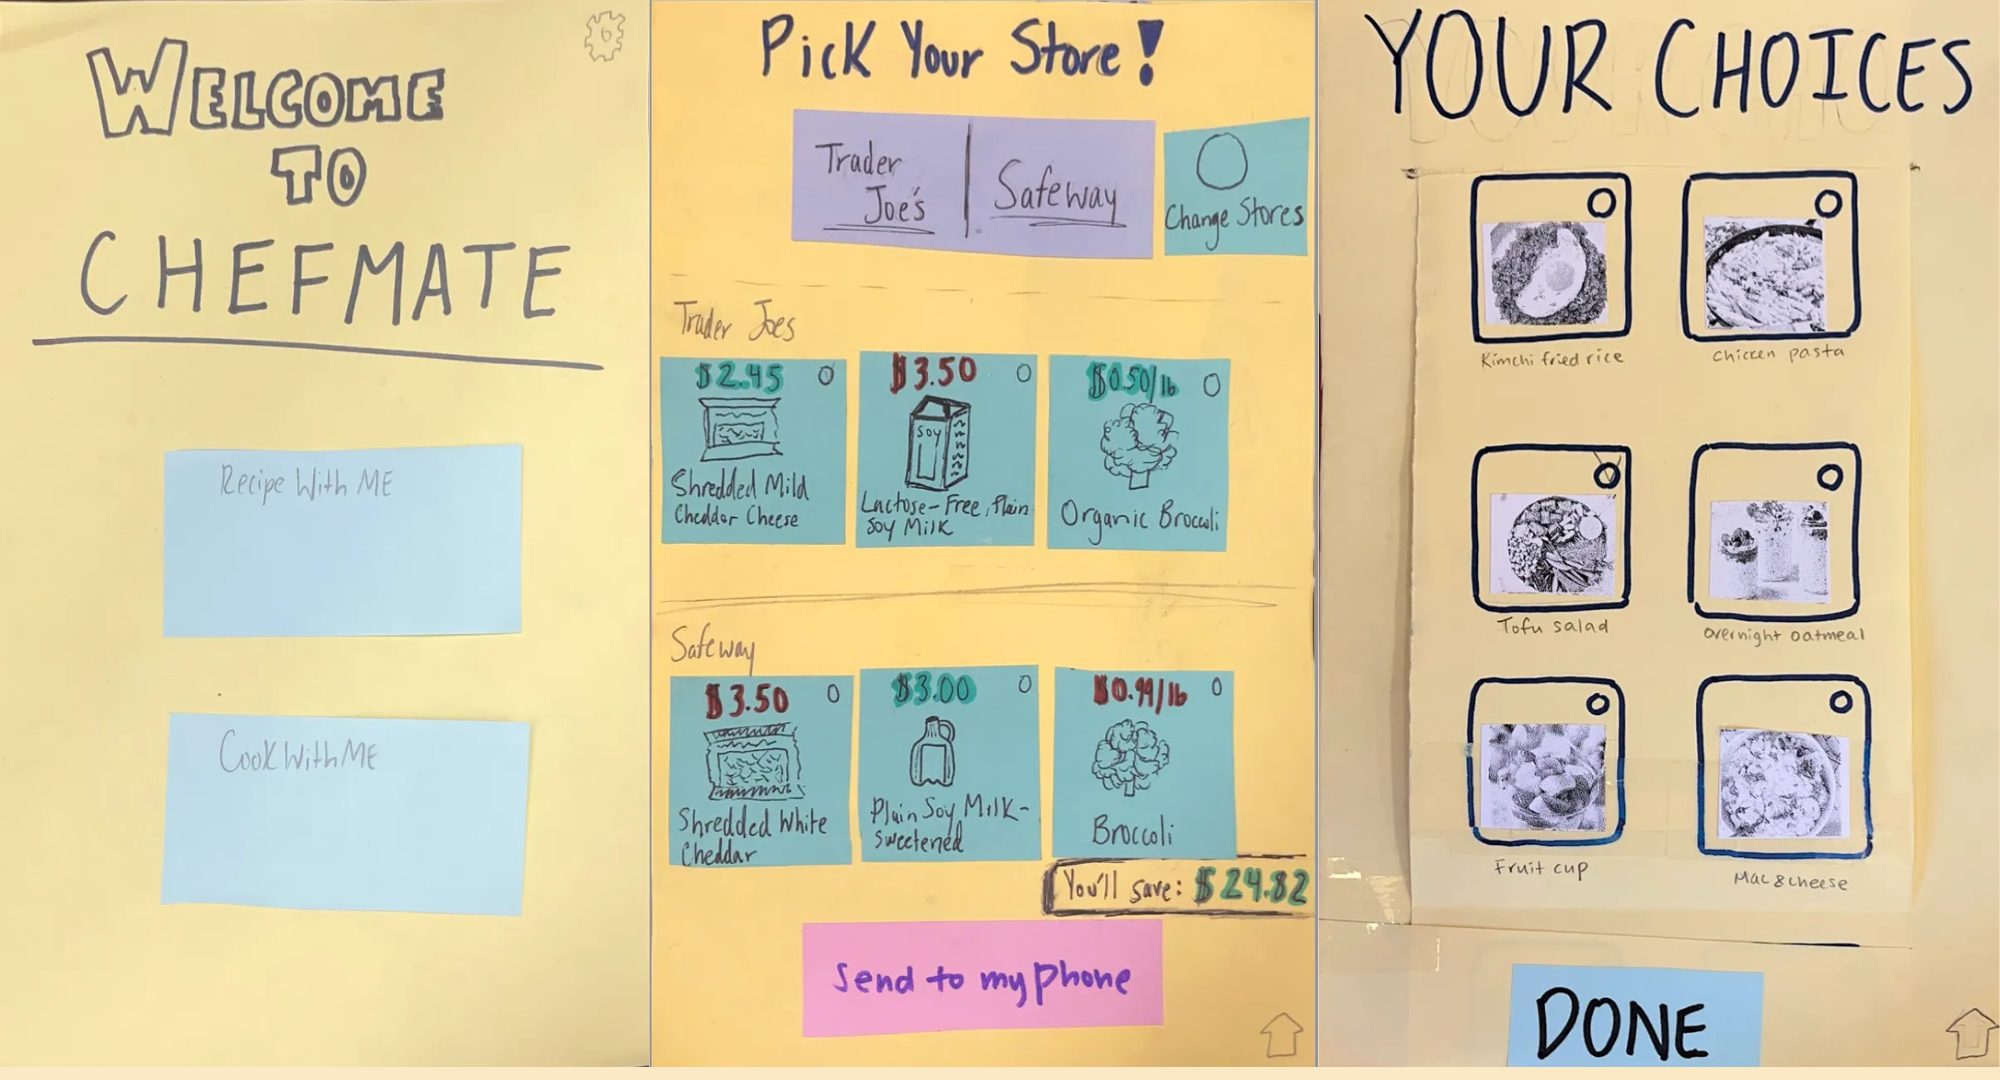 WELCOME
TO
CHEFMATE
Recipe With ME
Cook With ME
Pick Your Store!
Trader
Joe's
Safeway
Change Stores
Trader Joes
$2.45
Shredded Mild
Cheddar Cheese
$3.50
SOY
Lactose-Free, Plain
Soy Milk
$0.50/lb
Organic Broccoli
Safeway
$3.50
Shredded White
Cheddar
$3.00
Plain Soy Milk-
sweetened
$0.99/lb
Broccoli
You'll save: $24.82
Send to my phone
YOUR CHOICES
Kimchi fried rice
Chicken pasta
Tofu salad
overnight oatmeal
Fruit cup
Mac & cheese
DONE